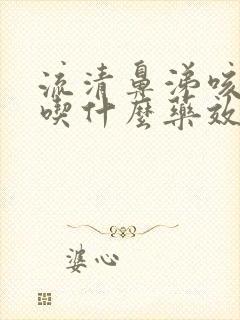 流清鼻涕咳
喫什麼藥效
婆心